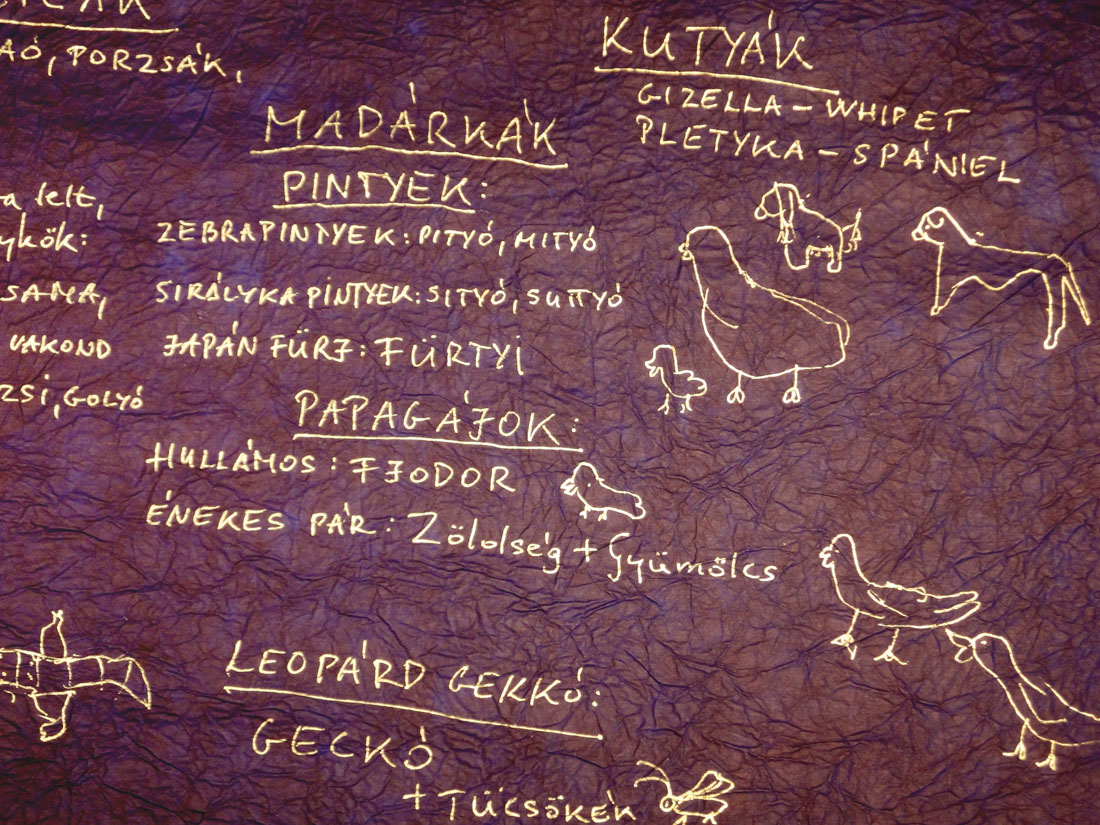 AÓ, PORZSÁK,
KUTYÁK
GIZELLA – WHIPET
PLETYKA – SPÁNIEL
MADÁRKÁK
PINTYEK:
ZEBRAPINTYEK: PITYÓ, MITYÓ
SIRÁLYKA PINTYEK: SITYÓ, SUTTYÓ
JAPÁN FÜRJ: FÜRTYI
PAPAGÁJOK:
HULLÁMOS: FJODOR
ÉNEKES PÁR: Zöldség + Gyümölcs
lelt,
ykök:
SAMA,
VAKOND
ZSI, GOLYÓ
LEOPÁRD GEKKÓ:
GECKÓ
+ TÜCSÖKÉK